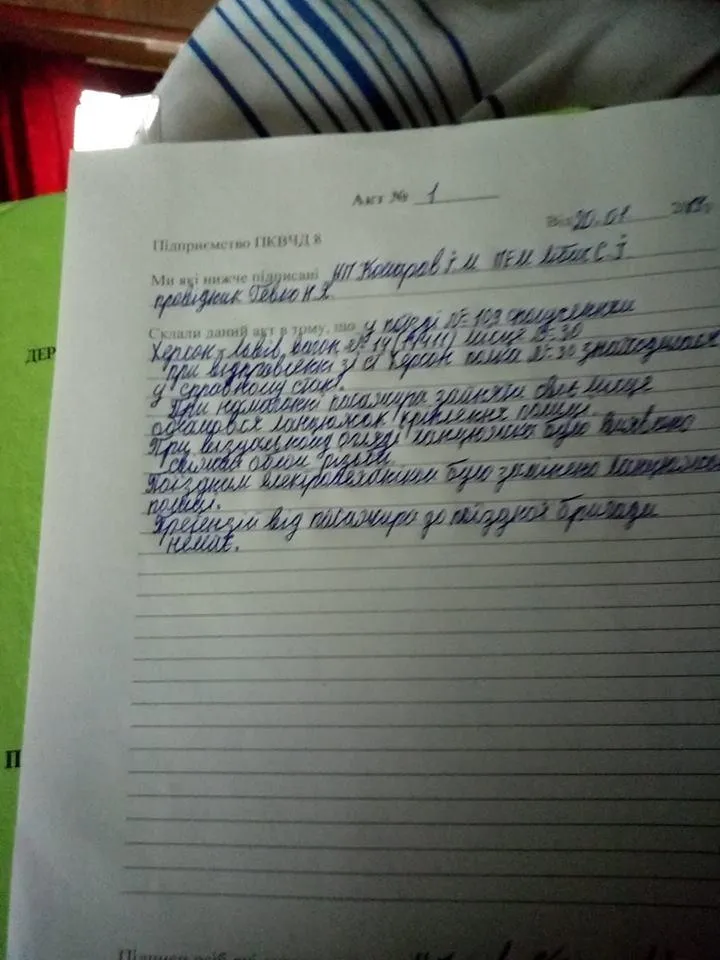 Акт № 1
Від 20.01
Підприємство ПКВЧД 8
Ми які нижче підписані НП Комаров І.М ПЕМ С.Й
провідник Н.Я.
Склали даний акт в тому, що у поїзді № 109 сполученням
Херсон-Львів вагон № 14 місце № 30
при відправленні зі ст Херсон полка № 30 знаходилась
у справному стані.
При намаганні пасажира зайняти своє місце
обламався ланцюжок кріплення полиці.
При візуальному огляді ланцюжка було виявлено
облом різьби.
Поїздним електромеханіком було замінено ланцюжок
полиці.
Претензій від пасажира до поїздної бригади
немає.
ДЕР
П